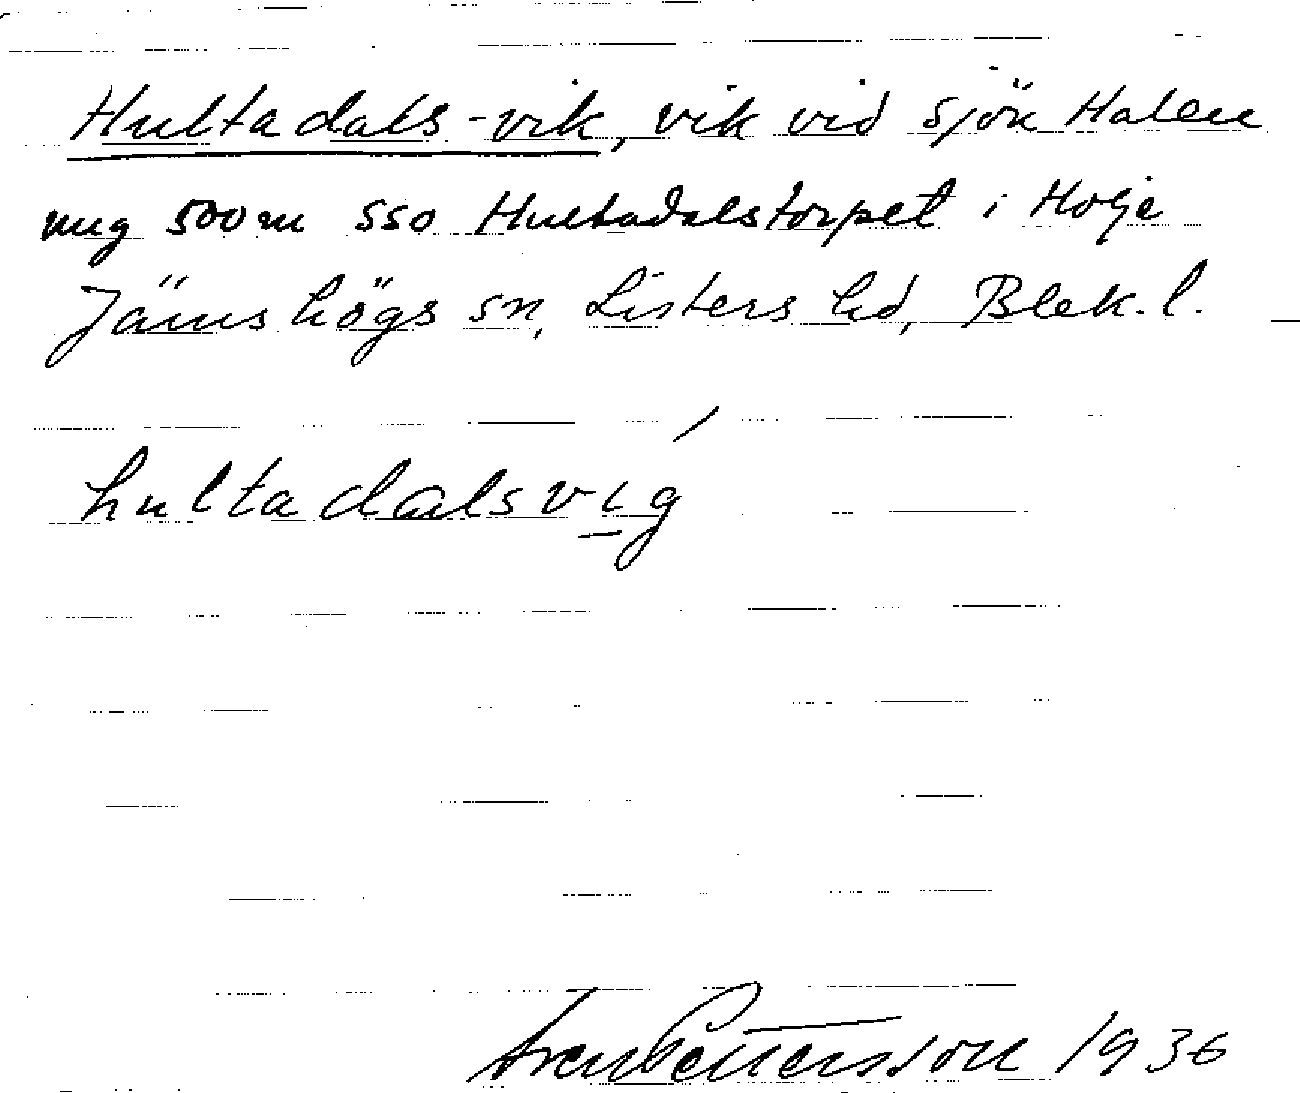 Hultadals-vik, vik vid sjön Halen
ung 500 m SSO Hultadalstorpet i Holje
Jämshögs sn, Listers hd, Blek. l.
hultadalsvig
Sven Pettersson 1936